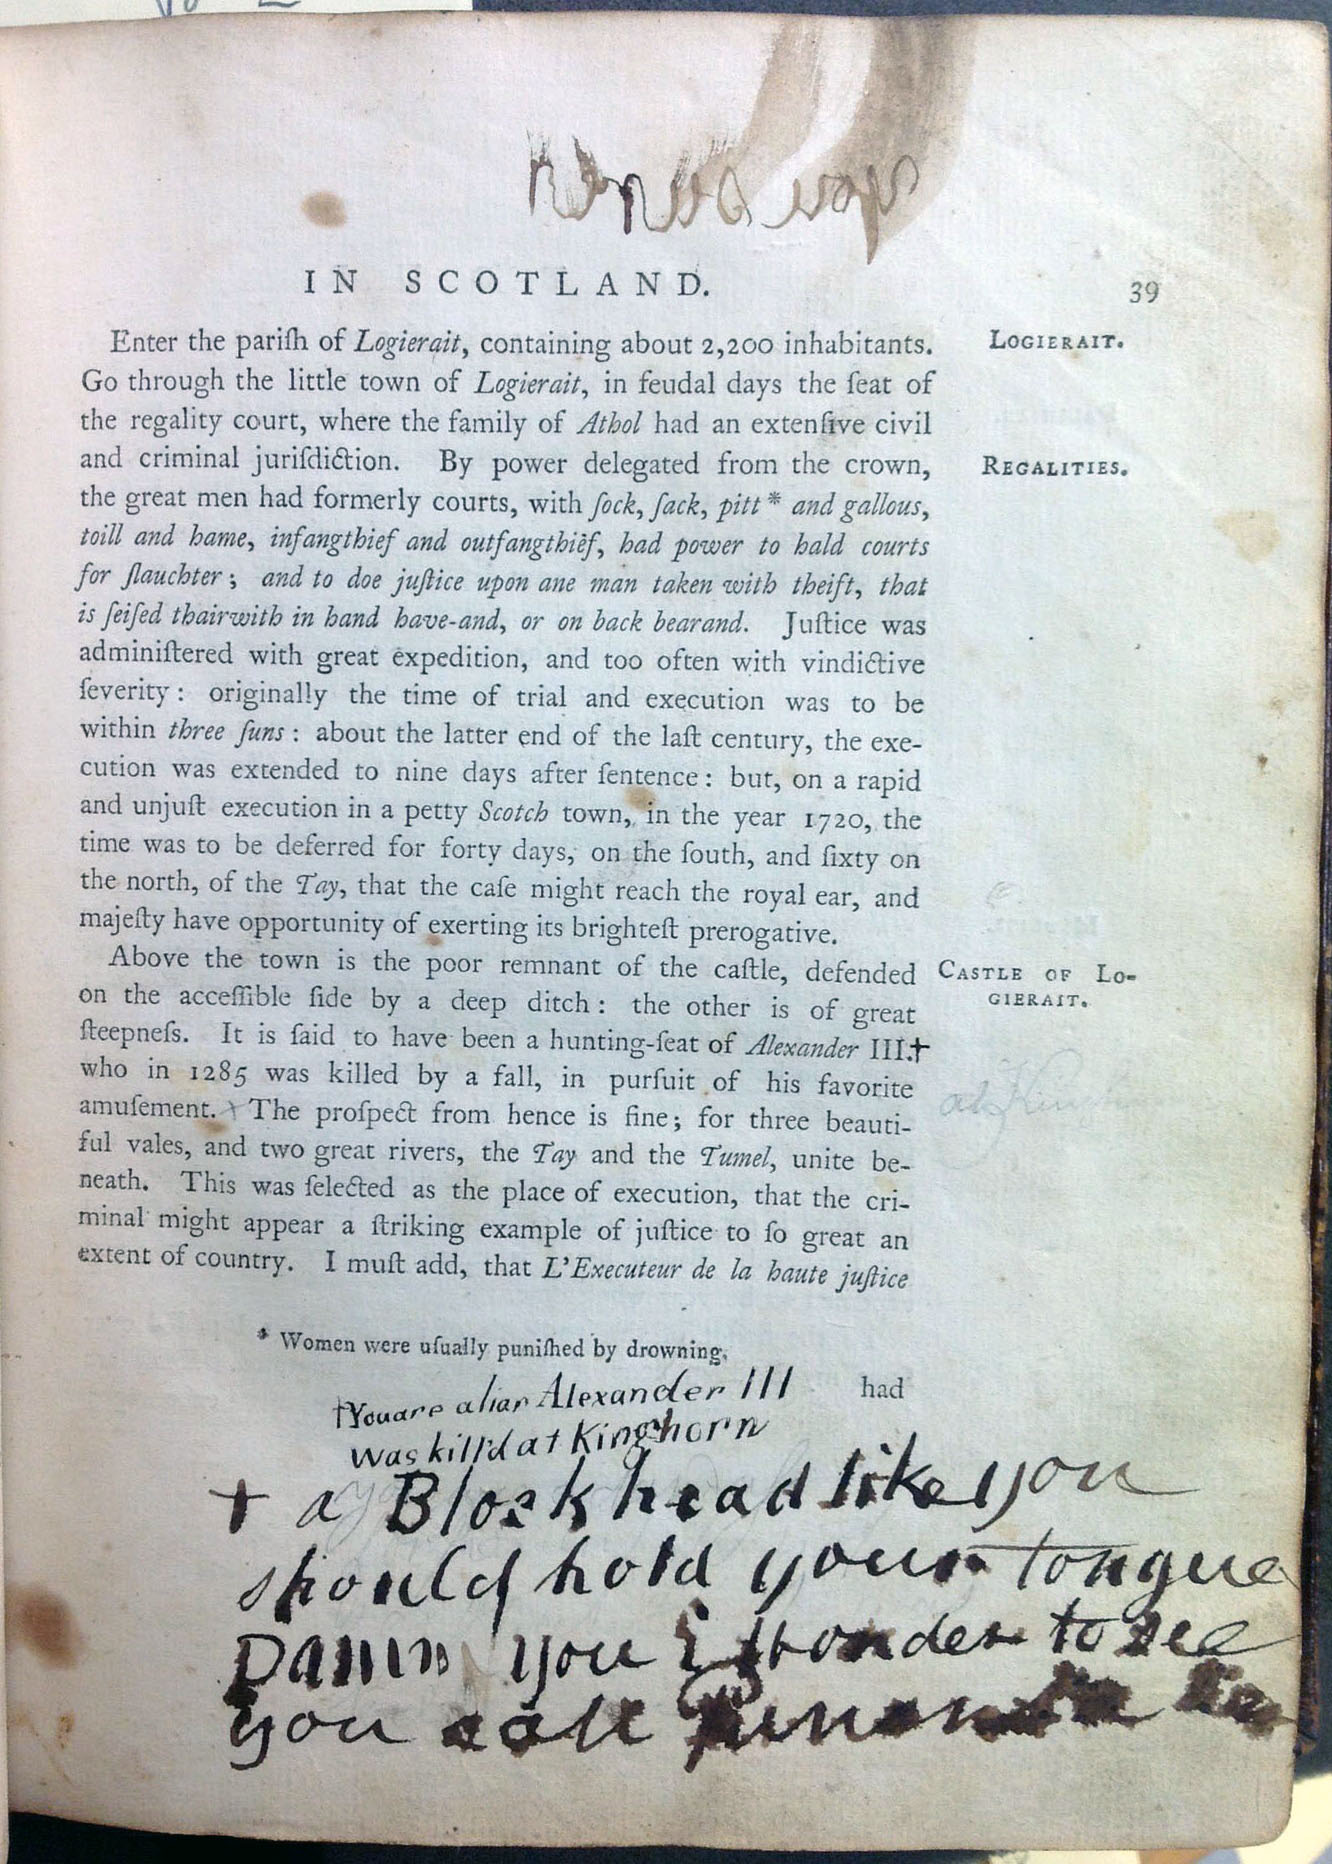 IN SCOTLAND. 39
Enter the pariſh of Logierait, containing about 2,200 inhabitants. LOGIERAIT.
Go through the little town of Logierait, in feudal days the ſeat of
the regality court, where the family of Athol had an extenſive civil
and criminal juriſdiction. By power delegated from the crown, REGALITIES.
the great men had formerly courts, with ſock, ſack, pitt * and gallous,
toill and hame, infangthief and outfangthief, had power to hald courts
for ſlauchter; and to doe juſtice upon ane man taken with theift, that
is ſeiſed thairwith in hand have-and, or on back bearand. Juſtice was
adminiſtered with great expedition, and too often with vindictive
ſeverity: originally the time of trial and execution was to be
within three ſuns: about the latter end of the laſt century, the exe-
cution was extended to nine days after ſentence: but, on a rapid
and unjuſt execution in a petty Scotch town, in the year 1720, the
time was to be deferred for forty days, on the ſouth, and ſixty on
the north, of the Tay, that the caſe might reach the royal ear, and
majeſty have opportunity of exerting its brighteſt prerogative.
Above the town is the poor remnant of the caſtle, defended CASTLE OF LO-
on the acceſſible ſide by a deep ditch: the other is of great GIERAIT.
ſteepneſs. It is ſaid to have been a hunting-ſeat of Alexander III.†
who in 1285 was killed by a fall, in purſuit of his favorite
amuſement. + The proſpect from hence is fine; for three beauti- at Kinghorn
ful vales, and two great rivers, the Tay and the Tumel, unite be-
neath. This was ſelected as the place of execution, that the cri-
minal might appear a ſtriking example of juſtice to ſo great an
extent of country. I muſt add, that L'Executeur de la haute juſtice
* Women were uſually puniſhed by drowning.
had
†You are a liar Alexander III
was kill'd at Kinghorn
+ a Block head like you
should hold your tongue
Damn you I wonder to see
you call